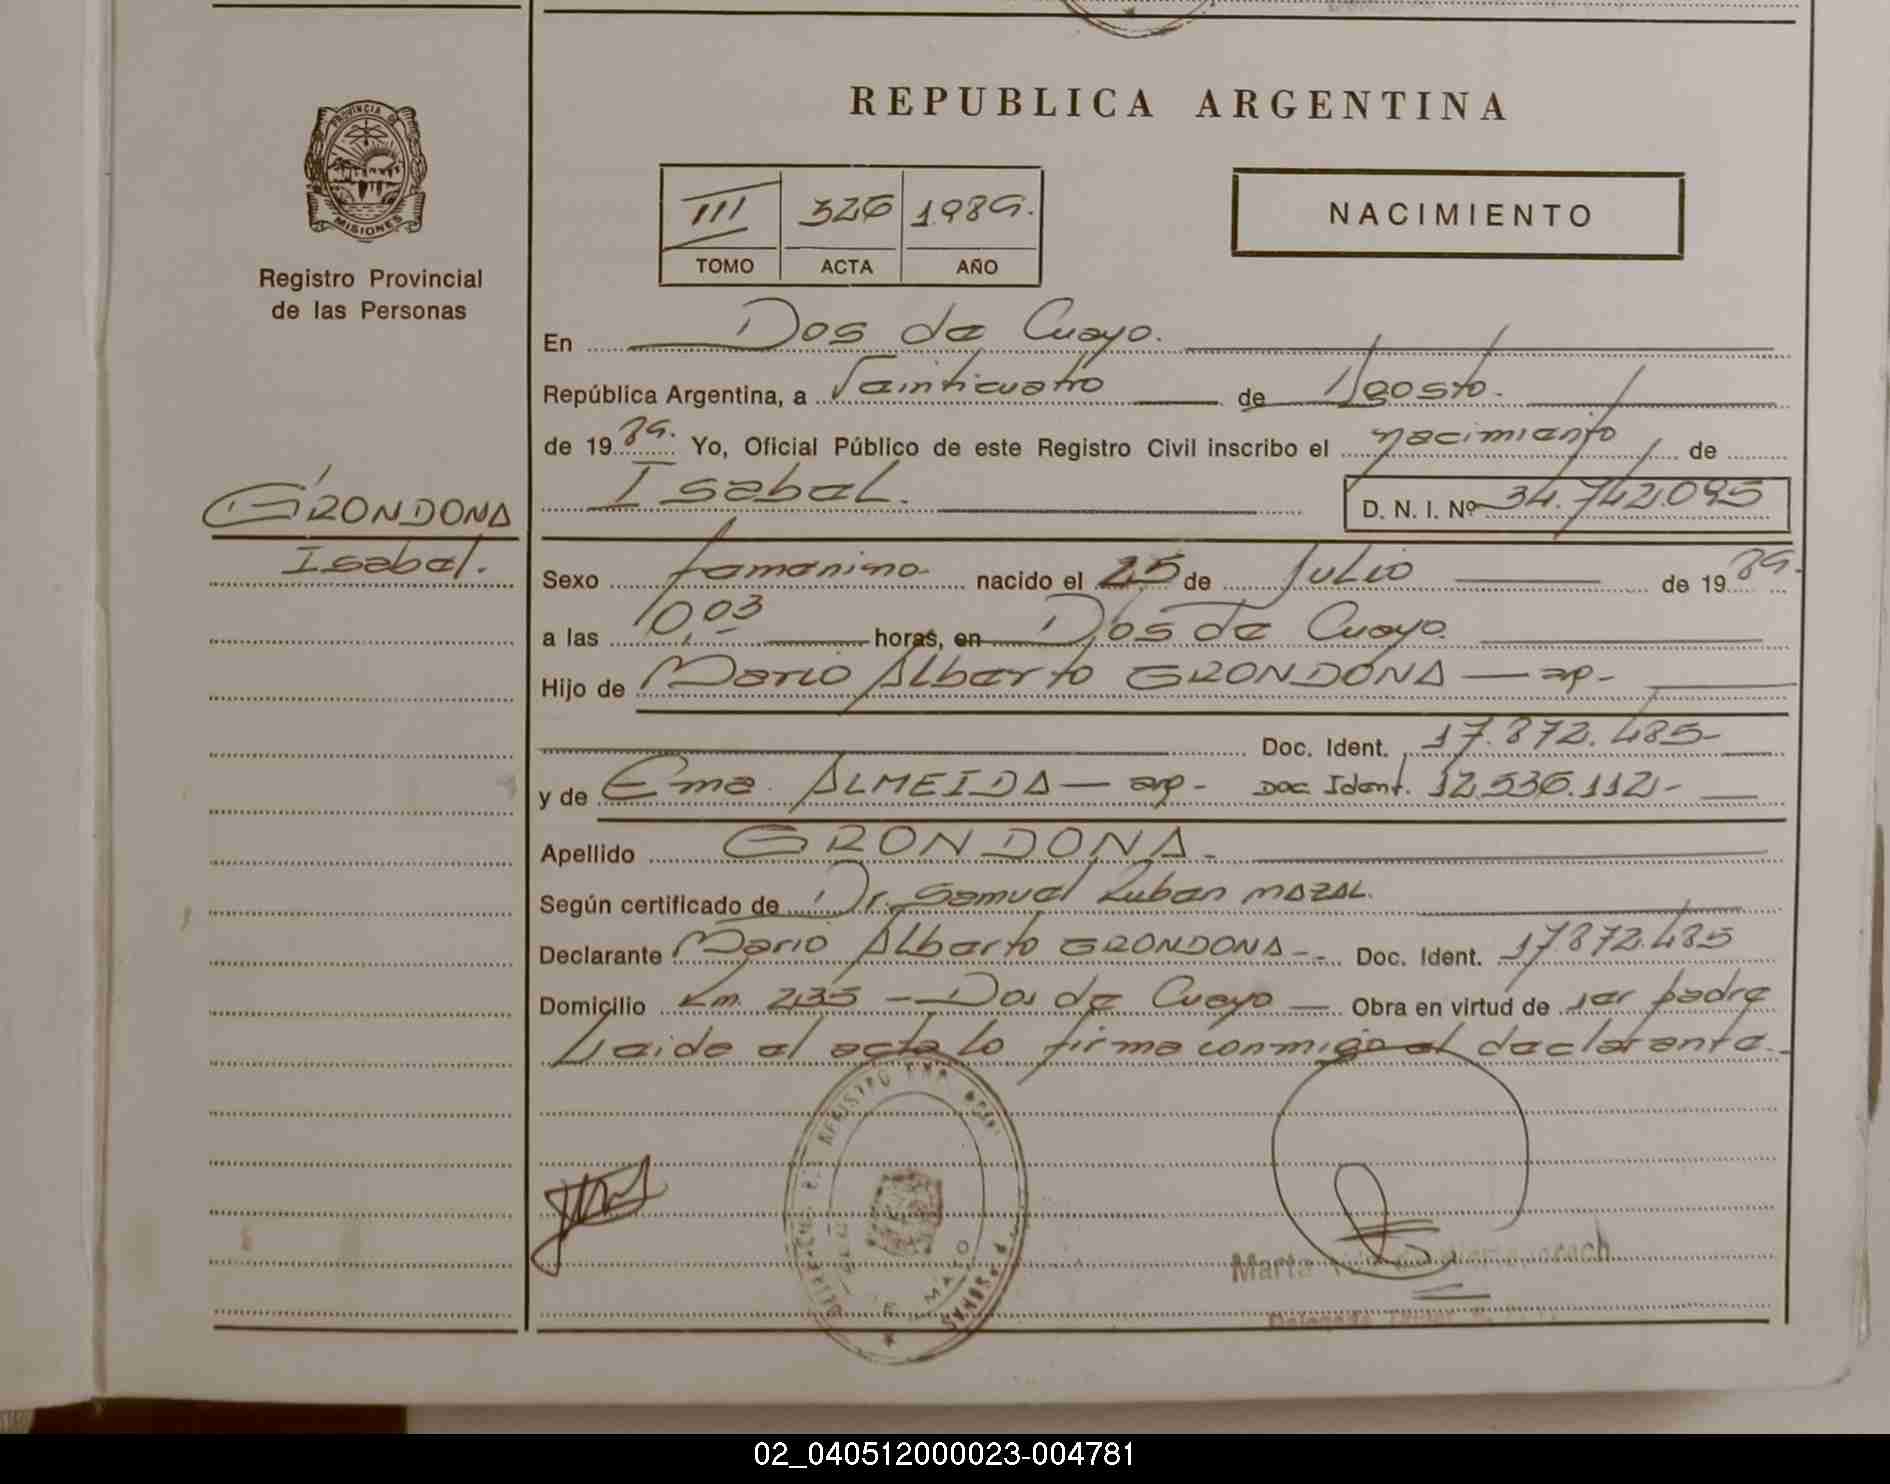 REPUBLICA ARGENTINA
PROVINCIA DE
MISIONES
Registro Provincial
de las Personas
III 326 1989.
TOMO ACTA AÑO
NACIMIENTO
En Dos de Cuayo.
República Argentina, a Veinticuatro de Agosto.
de 1989. Yo, Oficial Público de este Registro Civil inscribo el nacimiento de
Isabel. D. N. I. Nº 34.742.095
GRONDONA
Isabel.
Sexo femenino nacido el 25 de Julio de 1989.
a las 0,03 horas, en Dos de Cuayo.
Hijo de Mario Alberto GRONDONA — ap-
Doc. Ident. 17.872.485-
y de Ema ALMEIDA — ap- Doc Ident. 12.536.112-
Apellido GRONDONA-
Según certificado de Dr. Samuel Ruben MAZAL.
Declarante Mario Alberto GRONDONA-- Doc. Ident. 17872.485
Domicilio Km. 235 - Dos de Cuayo — Obra en virtud de ser padre
Leida el acta lo firma conmigo el declarante.-
REGISTRO
Marta
02_040512000023-004781